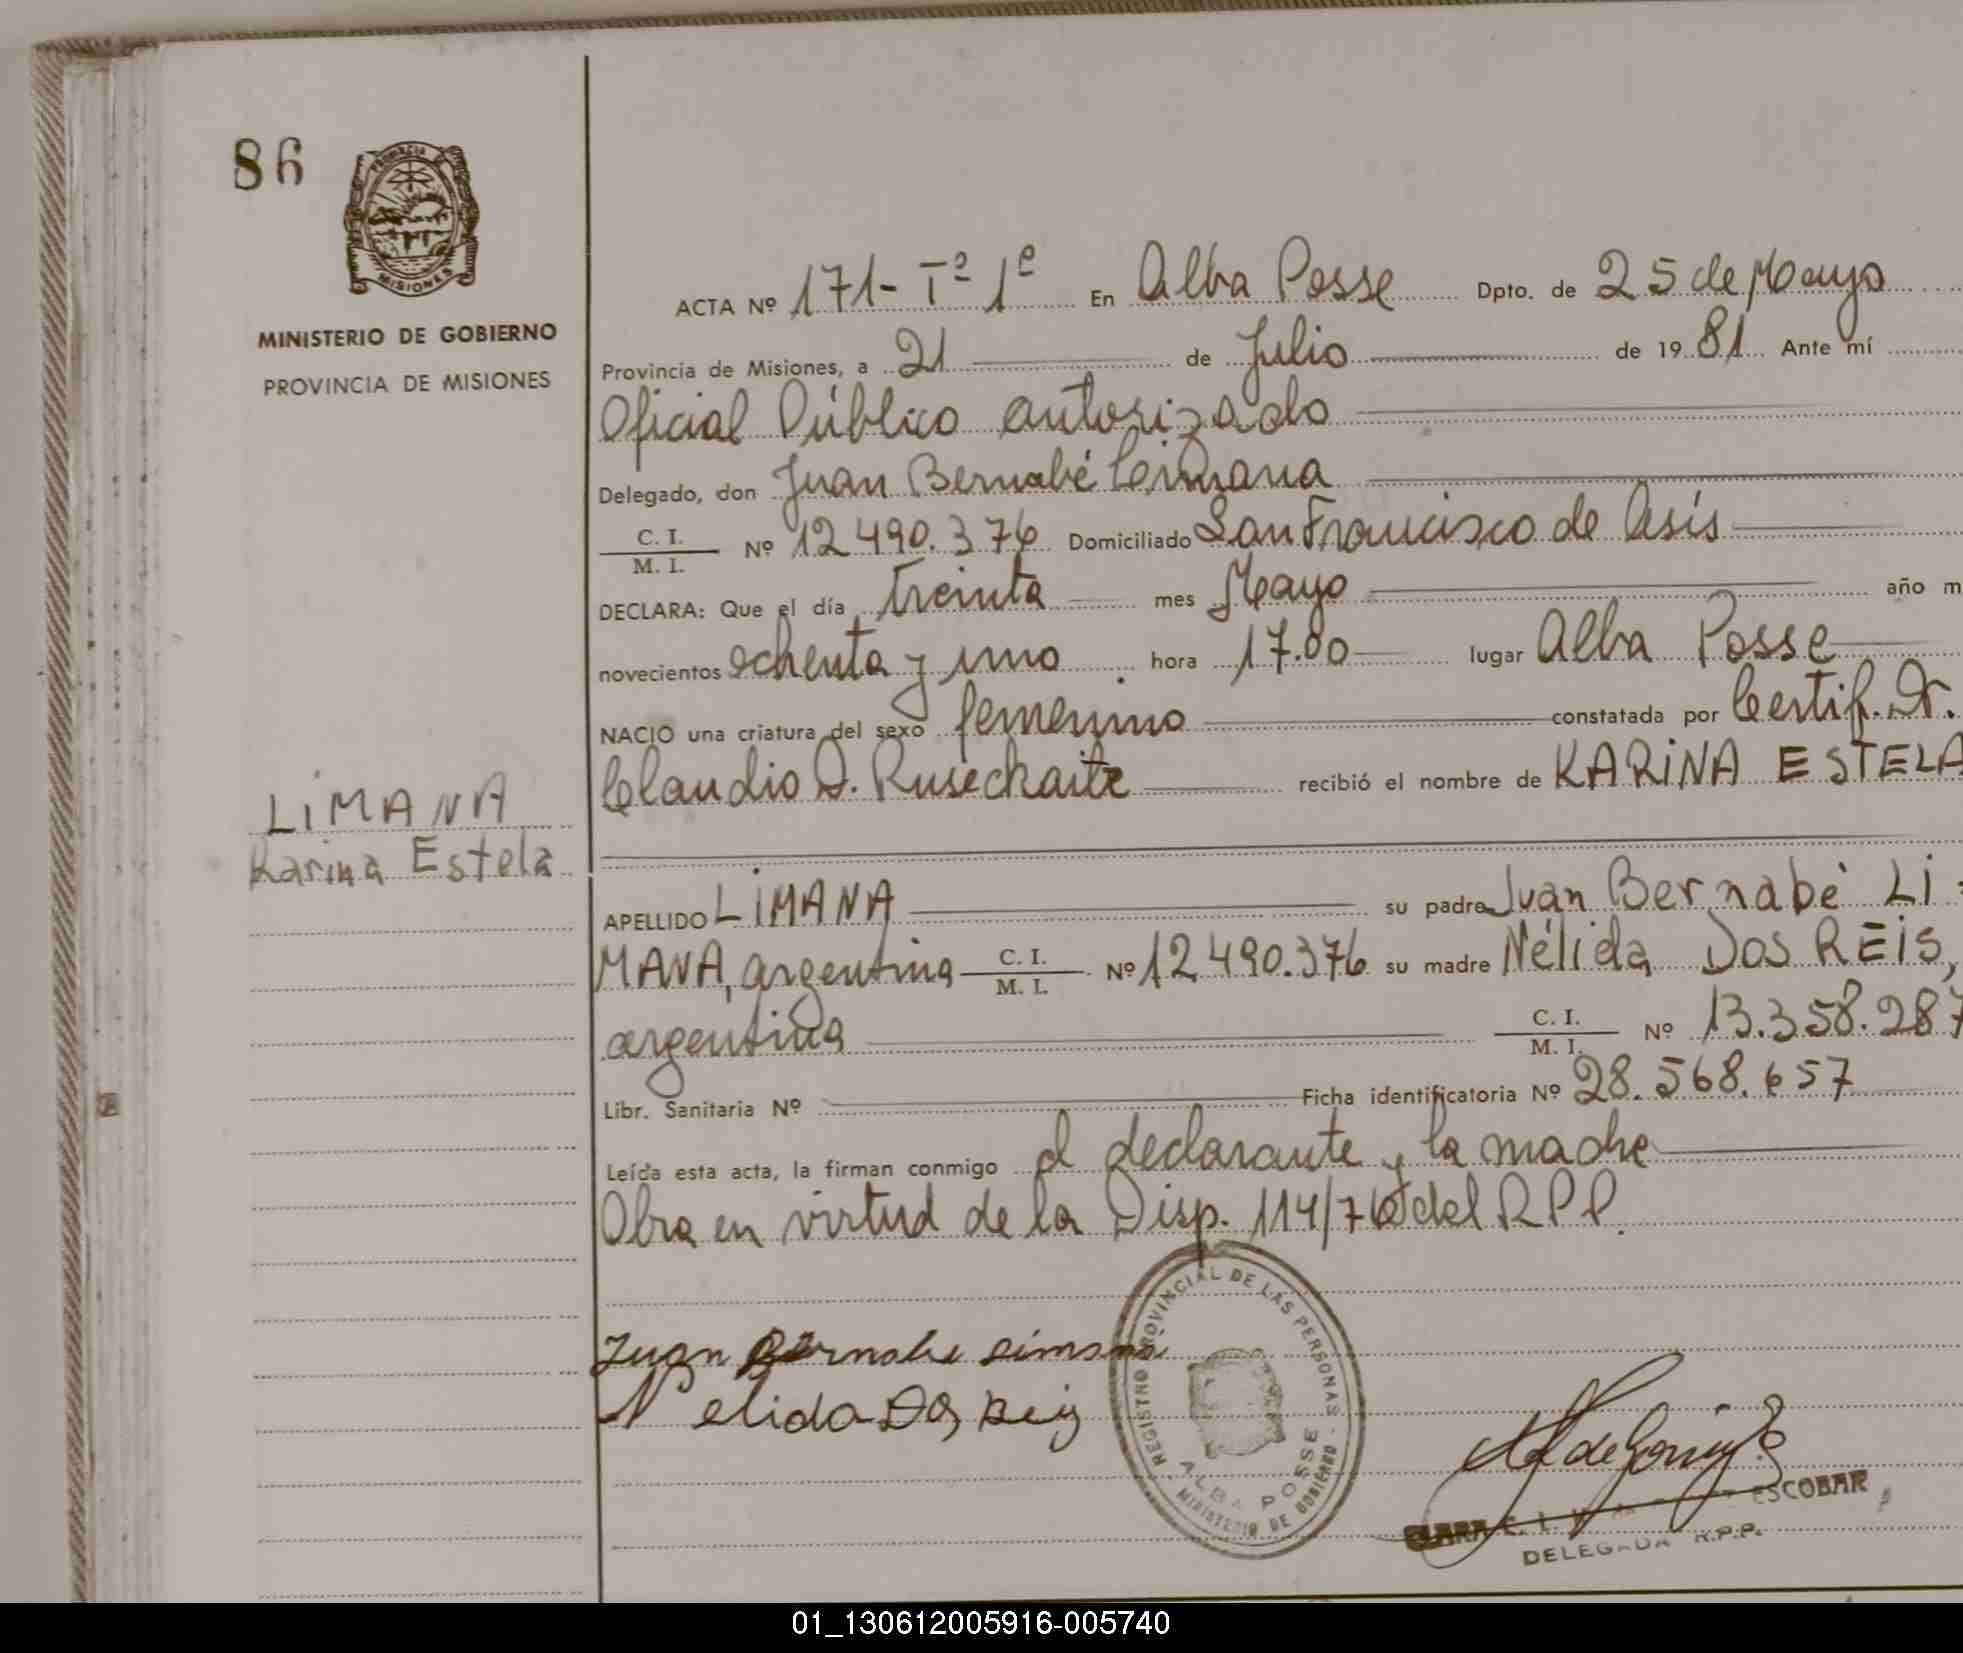 86
PROVINCIA
MISIONES
MINISTERIO DE GOBIERNO
PROVINCIA DE MISIONES
LIMANA
Karina Estela
ACTA Nº 171- Tº 1º En Alba Posse Dpto. de 25 de Mayo
Provincia de Misiones, a 21 de Julio de 1981 Ante mí
Oficial Público autorizado
Delegado, don Juan Bernabé Limana
C. I.
M. I. Nº 12.490.376 Domiciliado San Francisco de Asís
DECLARA: Que el día treinta mes Mayo año m
novecientos ochenta y uno hora 17.00 lugar Alba Posse
NACIO una criatura del sexo femenino constatada por Certif. Dr.
Claudio D. Ruseckaite recibió el nombre de KARINA ESTELA
APELLIDO LIMANA su padre Juan Bernabé LI=
MANA, argentina C. I.
M. I. Nº 12.490.376 su madre Nélida DOS REIS,
argentina C. I.
M. I. Nº 13.358.287
Libr. Sanitaria Nº Ficha identificatoria Nº 28.568.657
Leída esta acta, la firman conmigo el declarante y la madre
Obra en virtud de la Disp. 114/76 del R.P.P.
Juan Bernabe
Nelida Dos Reis
REGISTRO PROVINCIAL DE LAS PERSONAS - MINISTERIO DE GOBIERNO
ALBA POSSE
ESCOBAR
DELEGADA R.P.P.
01_130612005916-005740